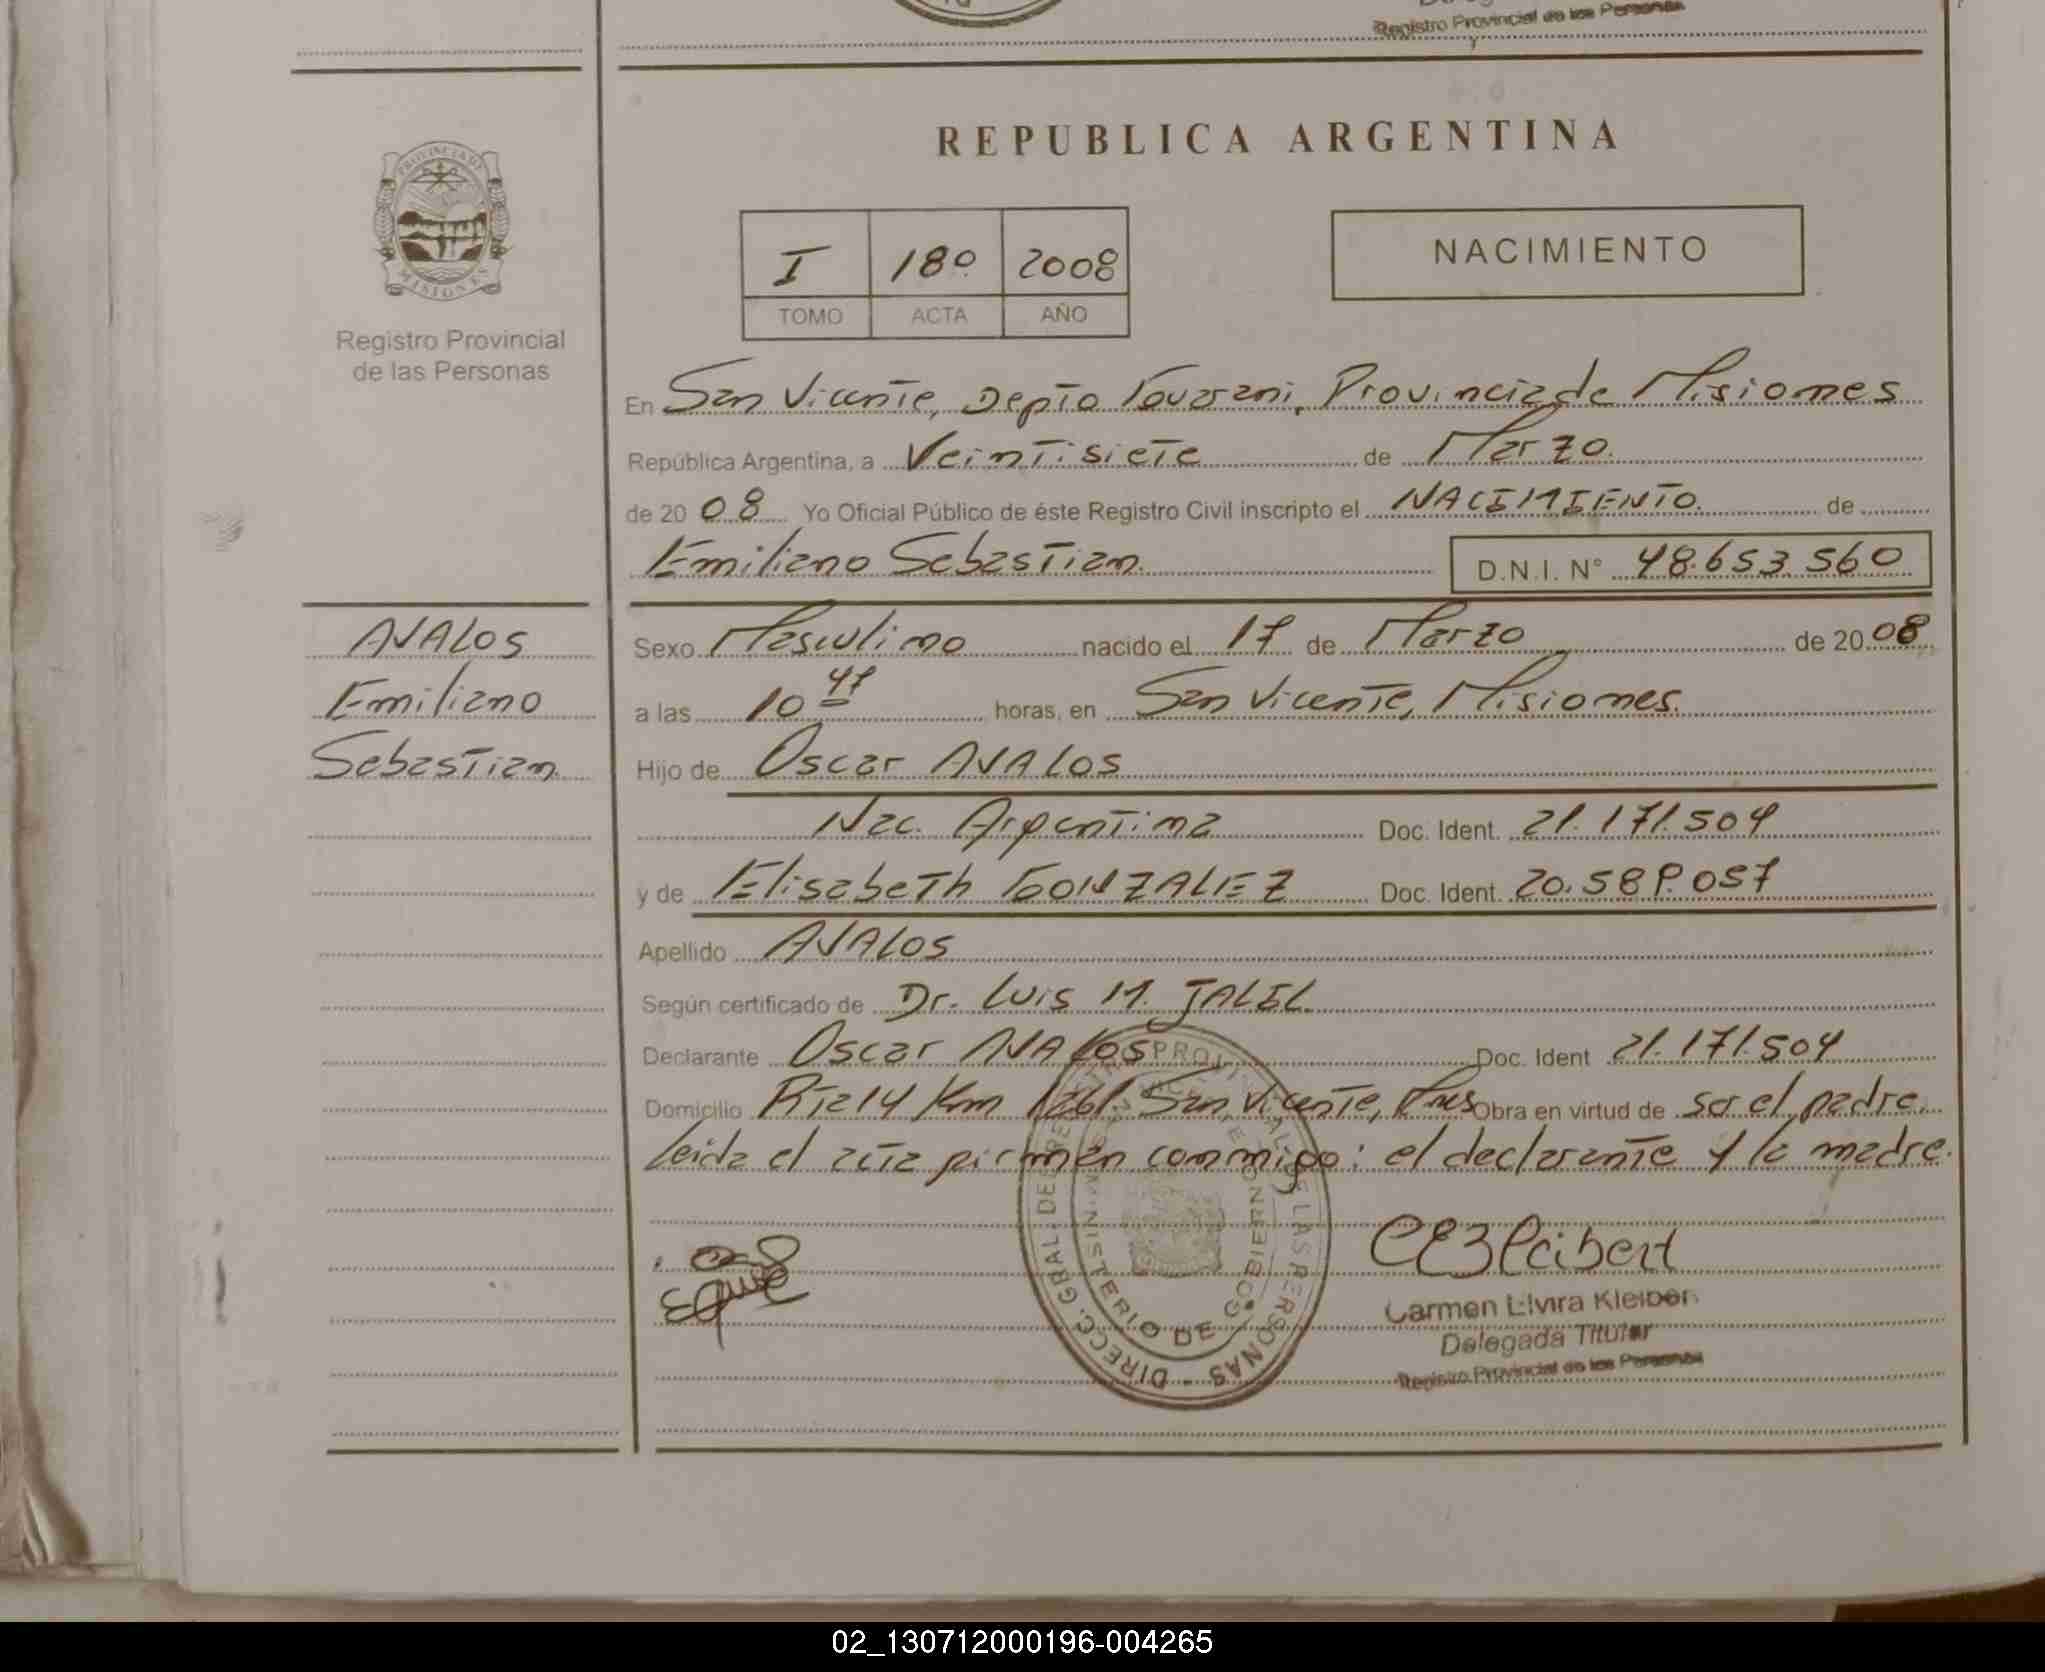 Registro Provincial de las Personas
REPUBLICA ARGENTINA
PROVINCIA DE
MISIONES
Registro Provincial
de las Personas
I 180 2008
TOMO ACTA AÑO
NACIMIENTO
En San Vicente, Depto Guarani, Provincia de Misiones
República Argentina, a Veintisiete de Marzo.
de 20 08 Yo Oficial Público de éste Registro Civil inscripto el NACIMIENTO. de
Emiliano Sebastian. D.N.I. N° 48.653.560
AVALOS
Emiliano
Sebastian
Sexo Masculino nacido el 17 de Marzo de 20 08
a las 10 47 horas, en San Vicente, Misiones.
Hijo de Oscar AVALOS
Nac. Argentina Doc. Ident. 21.171.504
y de Elisabeth GONZALEZ Doc. Ident. 20.589.057
Apellido AVALOS
Según certificado de Dr. Luis M. JALIL.
Declarante Oscar AVALOS Doc. Ident 21.171.504
Domicilio Rta 14 Km 1261 San Vicente, Mnes Obra en virtud de ser el padre.
Leida el acta firman conmigo: el declarante y la madre.
DIRECC. GRAL. DE REGISTRO PROVINCIAL DE LAS PERSONAS
MINISTERIO DE GOBIERNO
Carmen Elvira Kleiber
Delegada Titular
Registro Provincial de las Personas
02_130712000196-004265